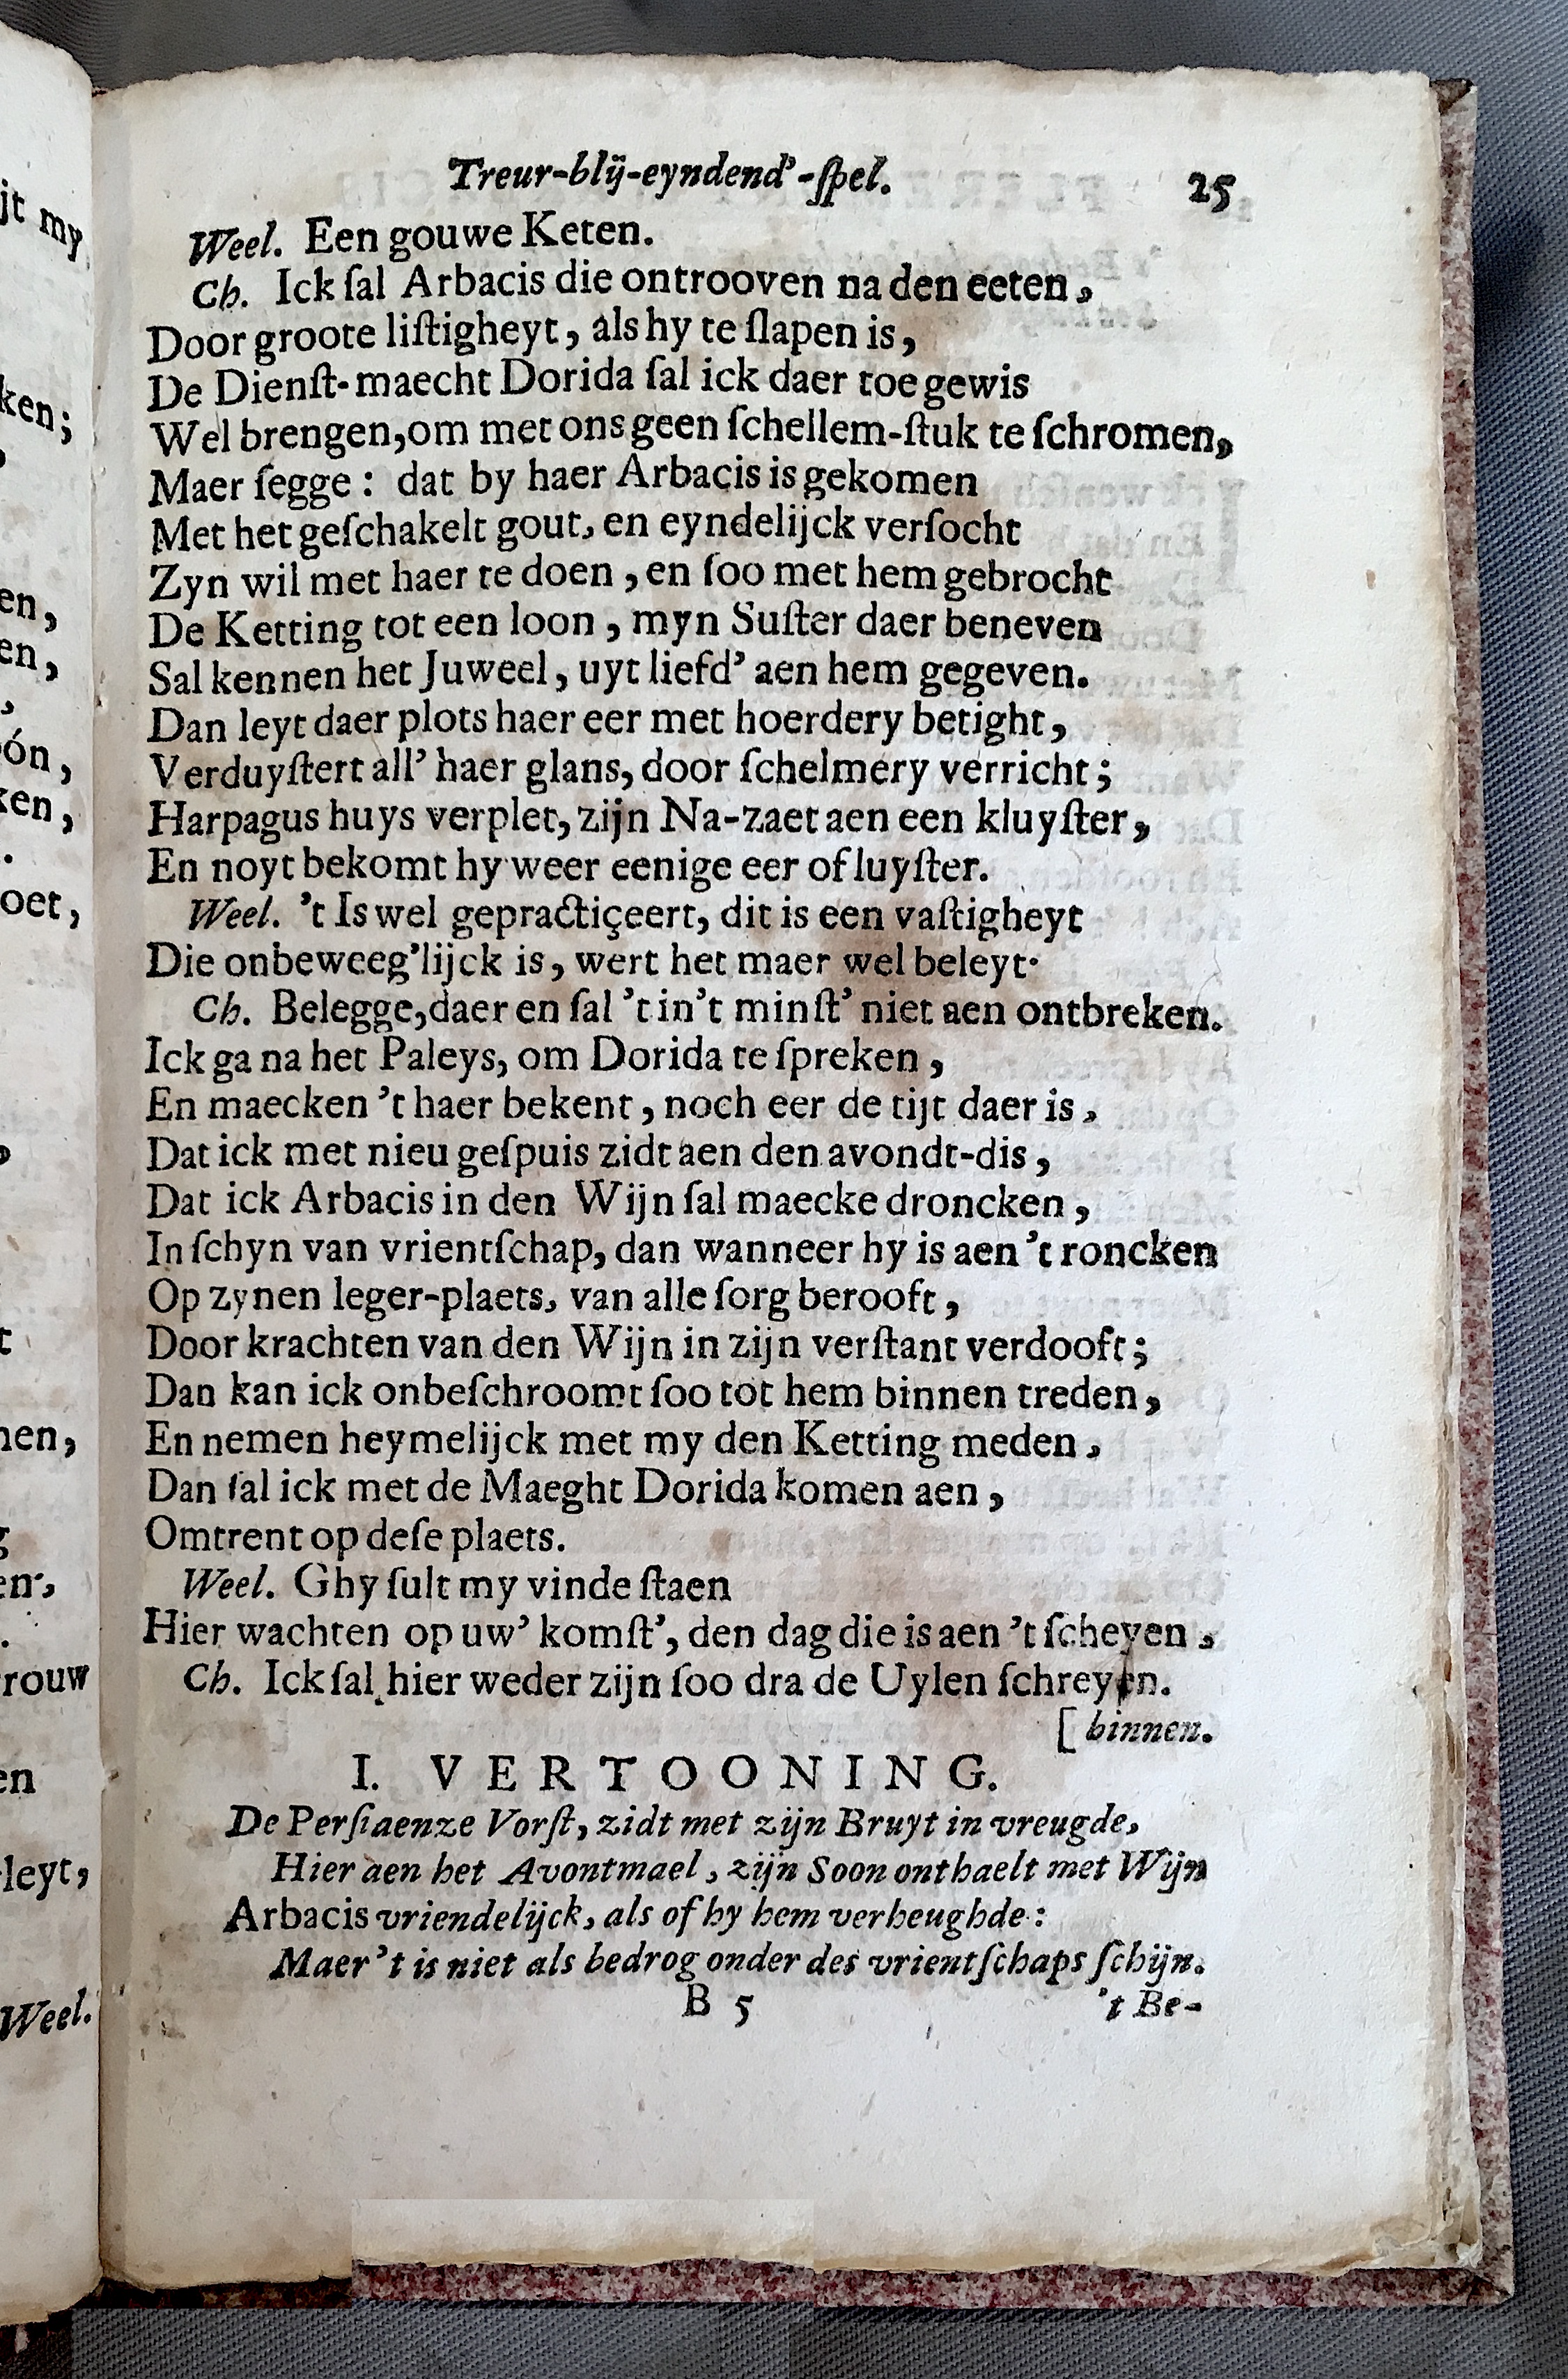 Treur-blij-eyndend'-ſpel. 25
Weel. Een gouwe Keten.
Ch. Ick ſal Arbacis die ontrooven na den eeten,
Door groote liſtigheyt, als hy te ſlapen is,
De Dienſt-maecht Dorida ſal ick daer toe gewis
Wel brengen, om met ons geen ſchellem-ſtuk te ſchromen,
Maer ſegge: dat by haer Arbacis is gekomen
Met het geſchakelt gout, en eyndelijck verſocht
Zyn wil met haer te doen, en ſoo met hem gebrocht
De Ketting tot een loon, myn Suſter daer beneven
Sal kennen het Juweel, uyt liefd' aen hem gegeven.
Dan leyt daer plots haer eer met hoerdery betight,
Verduyſtert all' haer glans, door ſchelmery verricht;
Harpagus huys verplet, zijn Na-zaet aen een kluyſter,
En noyt bekomt hy weer eenige eer of luyſter.
Weel. 't Is wel gepractiçeert, dit is een vaſtigheyt
Die onbeweeg'lijck is, wert het maer wel beleyt·
Ch. Belegge, daer en ſal 't in't minſt' niet aen ontbreken.
Ick ga na het Paleys, om Dorida te ſpreken,
En maecken 't haer bekent, noch eer de tijt daer is,
Dat ick met nieu geſpuis zidt aen den avondt-dis,
Dat ick Arbacis in den Wijn ſal maecke droncken,
In ſchyn van vrientſchap, dan wanneer hy is aen 't roncken
Op zynen leger-plaets, van alle ſorg berooft,
Door krachten van den Wijn in zijn verſtant verdooft;
Dan kan ick onbeſchroomt ſoo tot hem binnen treden,
En nemen heymelijck met my den Ketting meden,
Dan ſal ick met de Maeght Dorida komen aen,
Omtrent op deſe plaets.
Weel. Ghy ſult my vinde ſtaen
Hier wachten op uw' komſt', den dag die is aen 't ſcheyen,
Ch. Ick ſal hier weder zijn ſoo dra de Uylen ſchreyen.
[ binnen.
I. VERTOONING.
De Perſiaenze Vorſt, zidt met zijn Bruyt in vreugde,
Hier aen het Avontmael, zijn Soon onthaelt met Wijn
Arbacis vriendelijck, als of hy hem verheughde:
Maer 't is niet als bedrog onder des vrientſchaps ſchijn.
B 5 't Be-